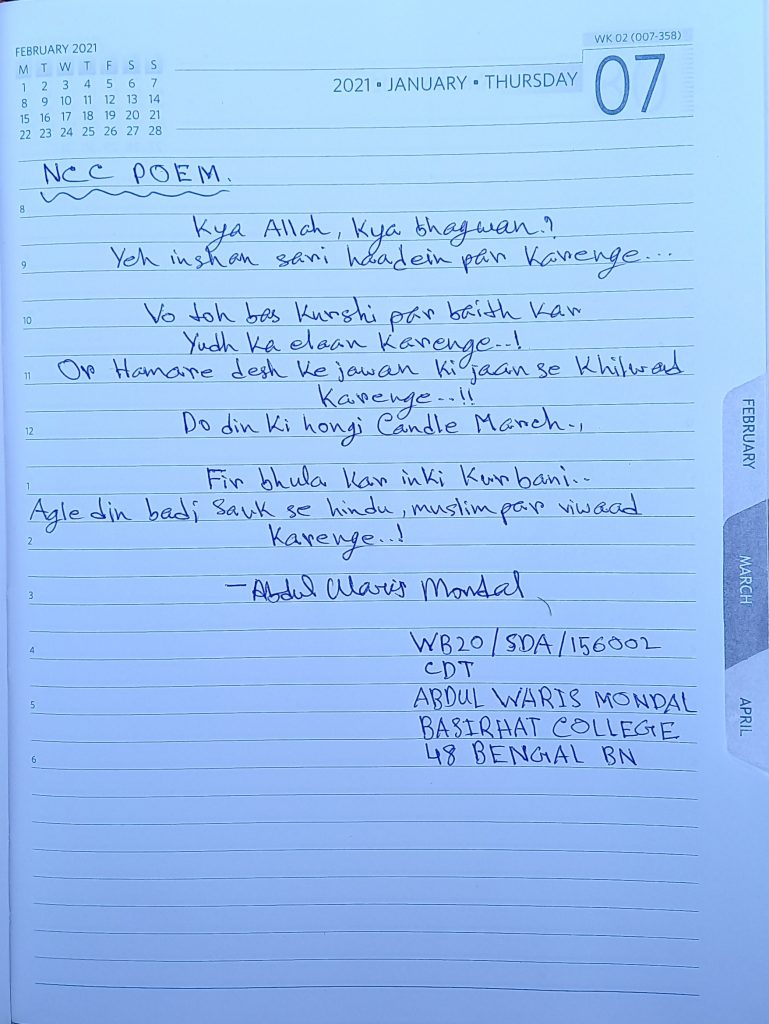 FEBRUARY 2021
M T W T F S S
1 2 3 4 5 6 7
8 9 10 11 12 13 14
15 16 17 18 19 20 21
22 23 24 25 26 27 28
WK 02 (007-358)
2021 • JANUARY • THURSDAY 07
NCC POEM.
8
Kya Allah, Kya bhagwan.?
9 Yeh inshan sari haadein par Karenge...
10 Vo toh bas Kurshi par baith Kar
Yudh Ka elaan Karenge..!
11 Or Hamare desh Ke jawan Ki jaan se Khilwad
Karenge..!!
12 Do din Ki hongi Candle March..,
1 Fir bhula Kar inKi Kurbani..
Agle din badi Sauk se hindu, muslim par viwaad
2 Karenge..!
3 – Abdul Waris Mondal
4 WB20/SDA/156002
CDT
5 ABDUL WARIS MONDAL
BASIRHAT COLLEGE
6 48 BENGAL BN
FEBRUARY
MARCH
APRIL